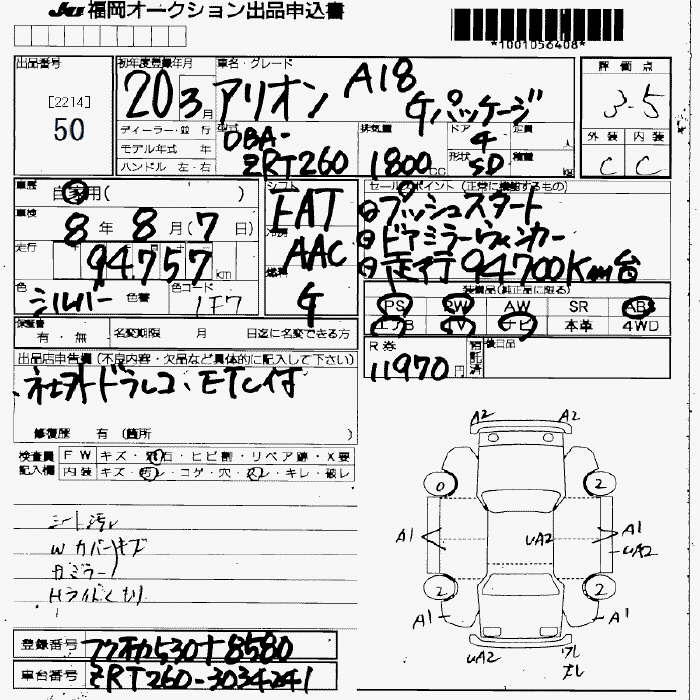 JU 福岡オークション出品申込書
*1001056408*
出品番号 初年度登録年月 車名・グレード 評価点
[2214] 20 3月 アリオン A18 3.5
50 Gパッケージ
ディーラー・並行 型式 排気量 ドア 定員 外装 内装
モデル年式 年 DBA- 4 人 C C
ハンドル 左・右 ZRT260 1800cc 形状 SD 積載 kg
車歴 自家用( ) シフト セールスポイント(正常に機能するもの)
車検 8年8月(7日) FAT ①プッシュスタート
走行 冷房 AAC ②ドアミラーウィンカー
94757km 燃料 ③走行94700Km台
色 シルバー 色番 色コード 1F7 G 装備品(純正品に限る)
PS PW AW SR ABS
エアB TV ナビ 本革 4WD
保証書 有・無 名変期限 月 日迄に名変できる方
R券 11970円 後日品
出品店申告欄(不良内容・欠品など具体的に記入して下さい)
社外ドラレコ、ETC付
修復歴 有(箇所 )
検査員 FW キズ・飛石・ヒビ割・リペア跡・X要
記入欄 内装 キズ・汚レ・コゲ・穴・スレ・キレ・破レ
A2 A2
0 2
A1 A1
UA2 UA2
シート汚レ
Wカバーキズ
Bミラー〃
Hライトくもり
2 2
A1 A1
UA2 ワレ
登録番号 フクオカ530す8580
車台番号 ZRT260-3034241